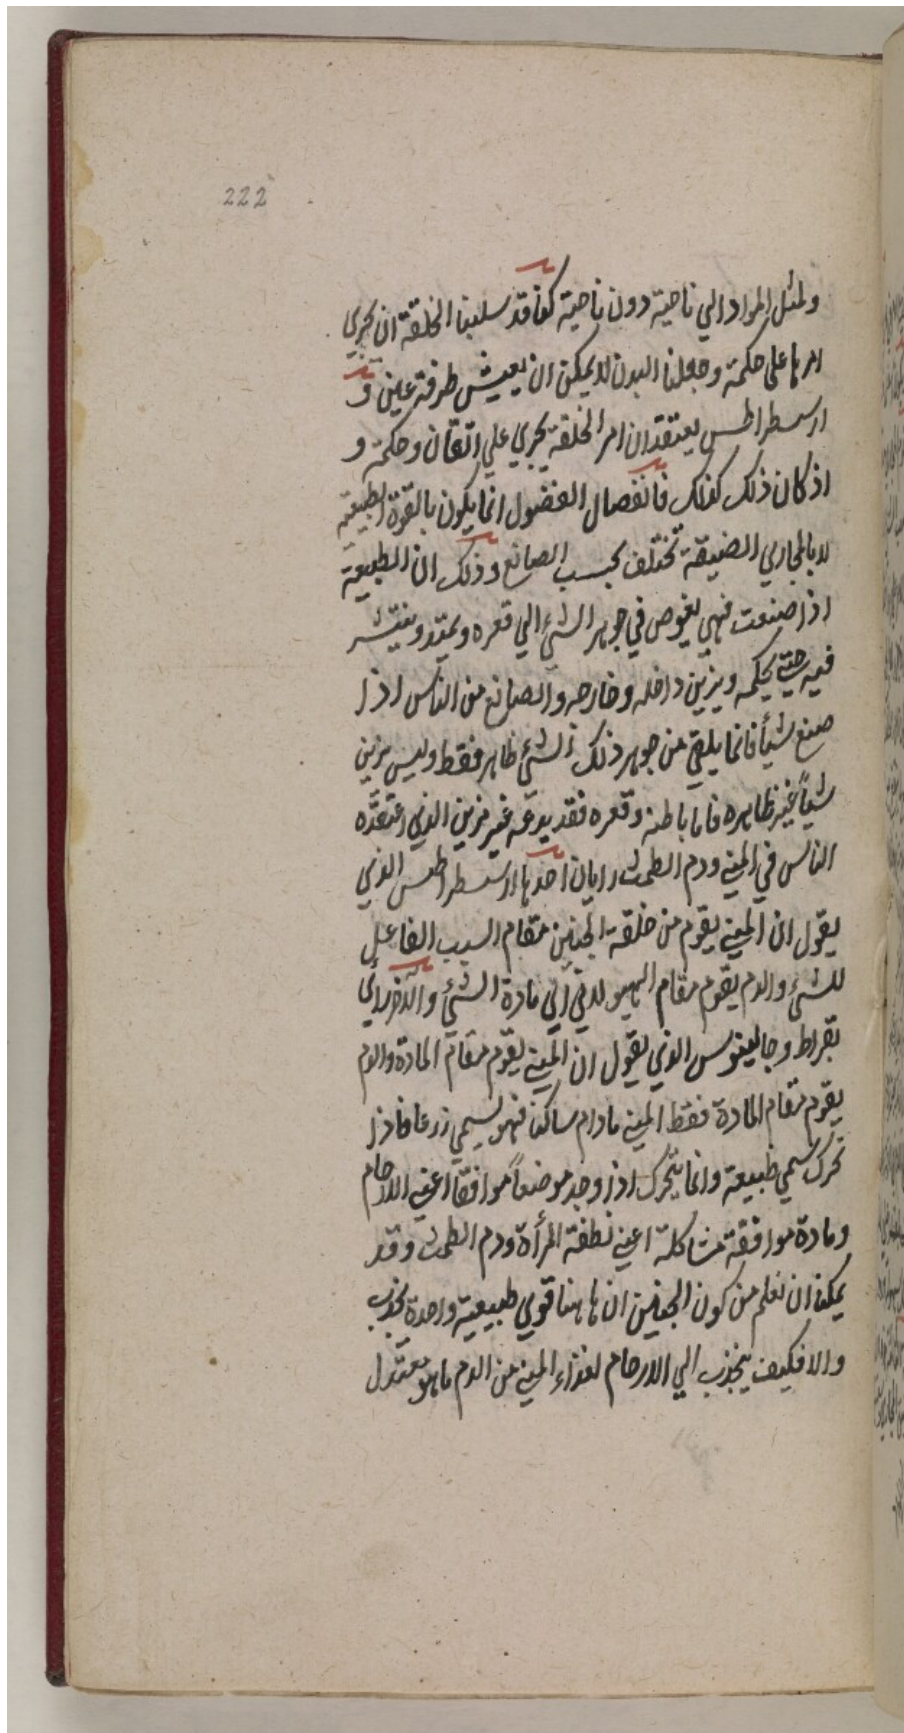 222
ولمثل المواد الي ناحية دون ناحية كنا قد سلبنا الخلقة ان يجري
امرها علي حكمة وجعلنا البدن لا يمكن ان يعيش طرفة عين و
ارسطراطس يعتقد ان امر الخلقة يجري علي اتقان وحكمة و
اذ كان ذلك كذلك فانفصال الفضول انما يكون بالقوة الطبيعية
لا بالمجاري الضيقة تختلف بحسب الصانع وذلك ان الطبيعة
اذا صنعت فهي تغوص في جوهر الشئ الي قعره ويمتد وينتشر
فيه حتي يحكمه ويزين داخله وخارجه والصانع من الناس اذا
صنع شيأ فانما يلقي من جوهر ذلك الشئ ظاهر فقط وليس يزين
شيأً غير ظاهره فاما باطنه وقعره فقد يدعه غير مزين الذي اعتقده
الناس في المني ودم الطمث رايان احدها ارسطراطس الذي
يقول ان المني يقوم من خلقة الجنين مقام السبب الفاعل
للشئ والدم يقوم مقام الهيولاني اي مادة الشئ والآخر رأي
بقراط وجالينوس الذي يقول ان المني يقوم مقام المادة والدم
يقوم مقام المادة فقط المني مادام ساكنا فهو يسمي زرعا فاذا
تحرك سمي طبيعة وانما يتحرك اذا وجد موضعاً موافقا اعني الارحام
ومادة موافقة مشاكلة اعني نطفة المرأة ودم الطمث وقد
يمكنا ان نعلم من كون الجنين ان هاهنا قوي طبيعية واحدة بجذب
والا فكيف ينجذب الي الارحام لغذاء المني من الدم ماهو معتدل